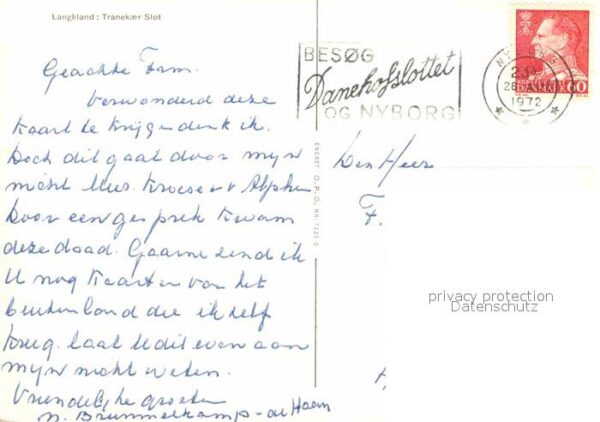 Langeland : Tranekær Slot
Geachte Fam.
Verwonderd deze
kaart te krijgen denk ik.
Doch dit gaat door mijn
nicht Mevr. Kroese v Alphen
Door een gesprek kwam
deze daad. Gaarne zend ik
U nog kaarten van het
buitenland die ik zelf
kreeg. laat U dit even aan
mijn nicht weten.
Vriendelijke groeten
n. Brummelkamp-de Haan
ENERET O.P.O. NR.
BESØG
Danehofslottet
OG NYBORG
NYBORG
23
1972
60
Den Heer
F.
privacy protection
Datenschutz